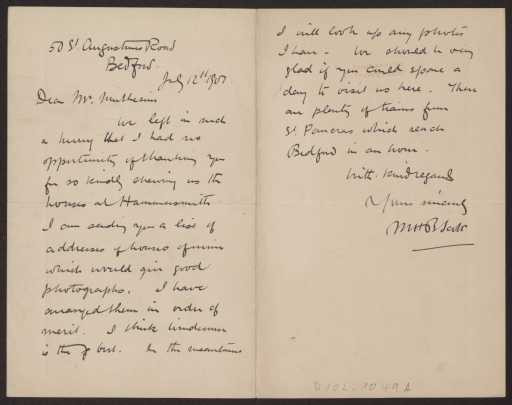 50 St Augustines Road
Bedford.
July 12th 1901
Dear Mr. Muthesius
We left in such
a hurry that I had no
opportunity of thanking you
for so kindly shewing us the
houses at Hammersmith
I am sending you a list of
addresses of houses of mine
which would give good
photographs. I have
arranged them in order of
merit. I think
is the best. In the meantime
I will look up any photos
I have. We should be very
glad if you could spare a
day to visit us here. There
are plenty of trains from
St. Pancras which reach
Bedford in an hour.
With kind regards
Yours sincerely